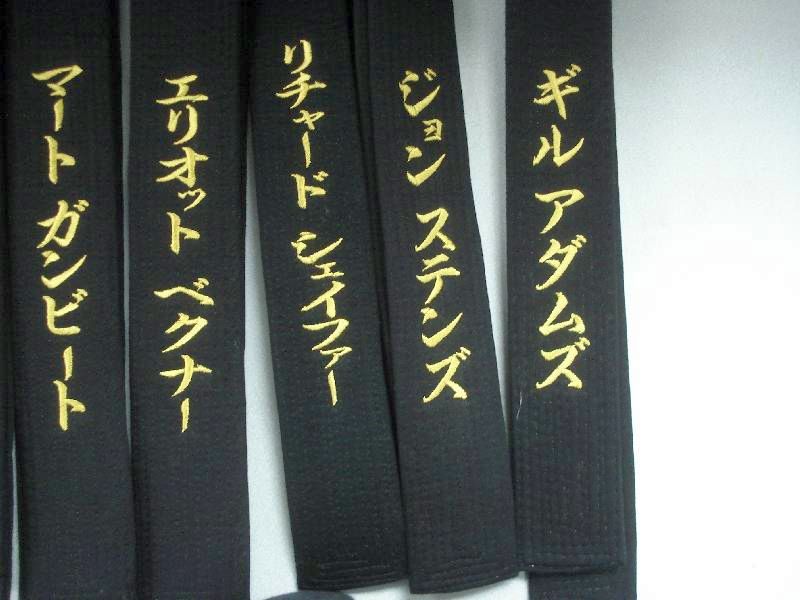 ギル アダムズ
ジョン ステンズ
リチャード シェイファー
エリオット ベクナー
マート ガンビート